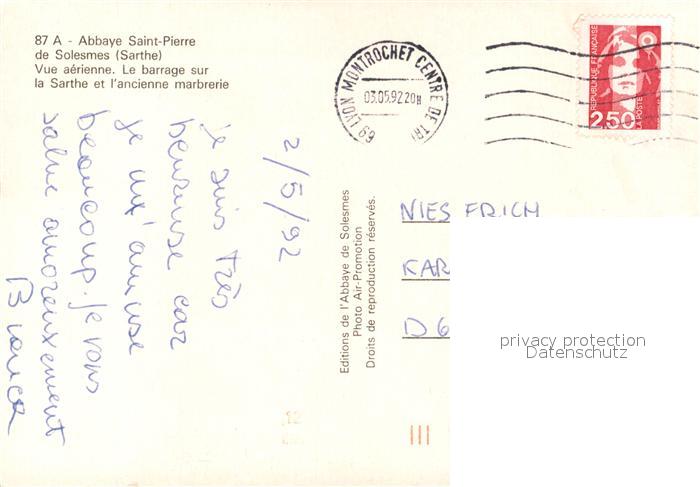 87 A - Abbaye Saint-Pierre
de Solesmes (Sarthe)
Vue aérienne. Le barrage sur
la Sarthe et l'ancienne marbrerie
69 LYON MONTROCHET CENTRE DE TRI
03.05.92 20H
RÉPUBLIQUE FRANÇAISE
2,50
LA POSTE
2/5/92
je suis très
heureuse car
je m'amuse
beaucoup. je vous
salue amoreuxement
Bianca
Editions de l'Abbaye de Solesmes
Photo Air-Promotion
Droits de reproduction réservés.
NIES ERICH
KAR
D 6
privacy protection
Datenschutz